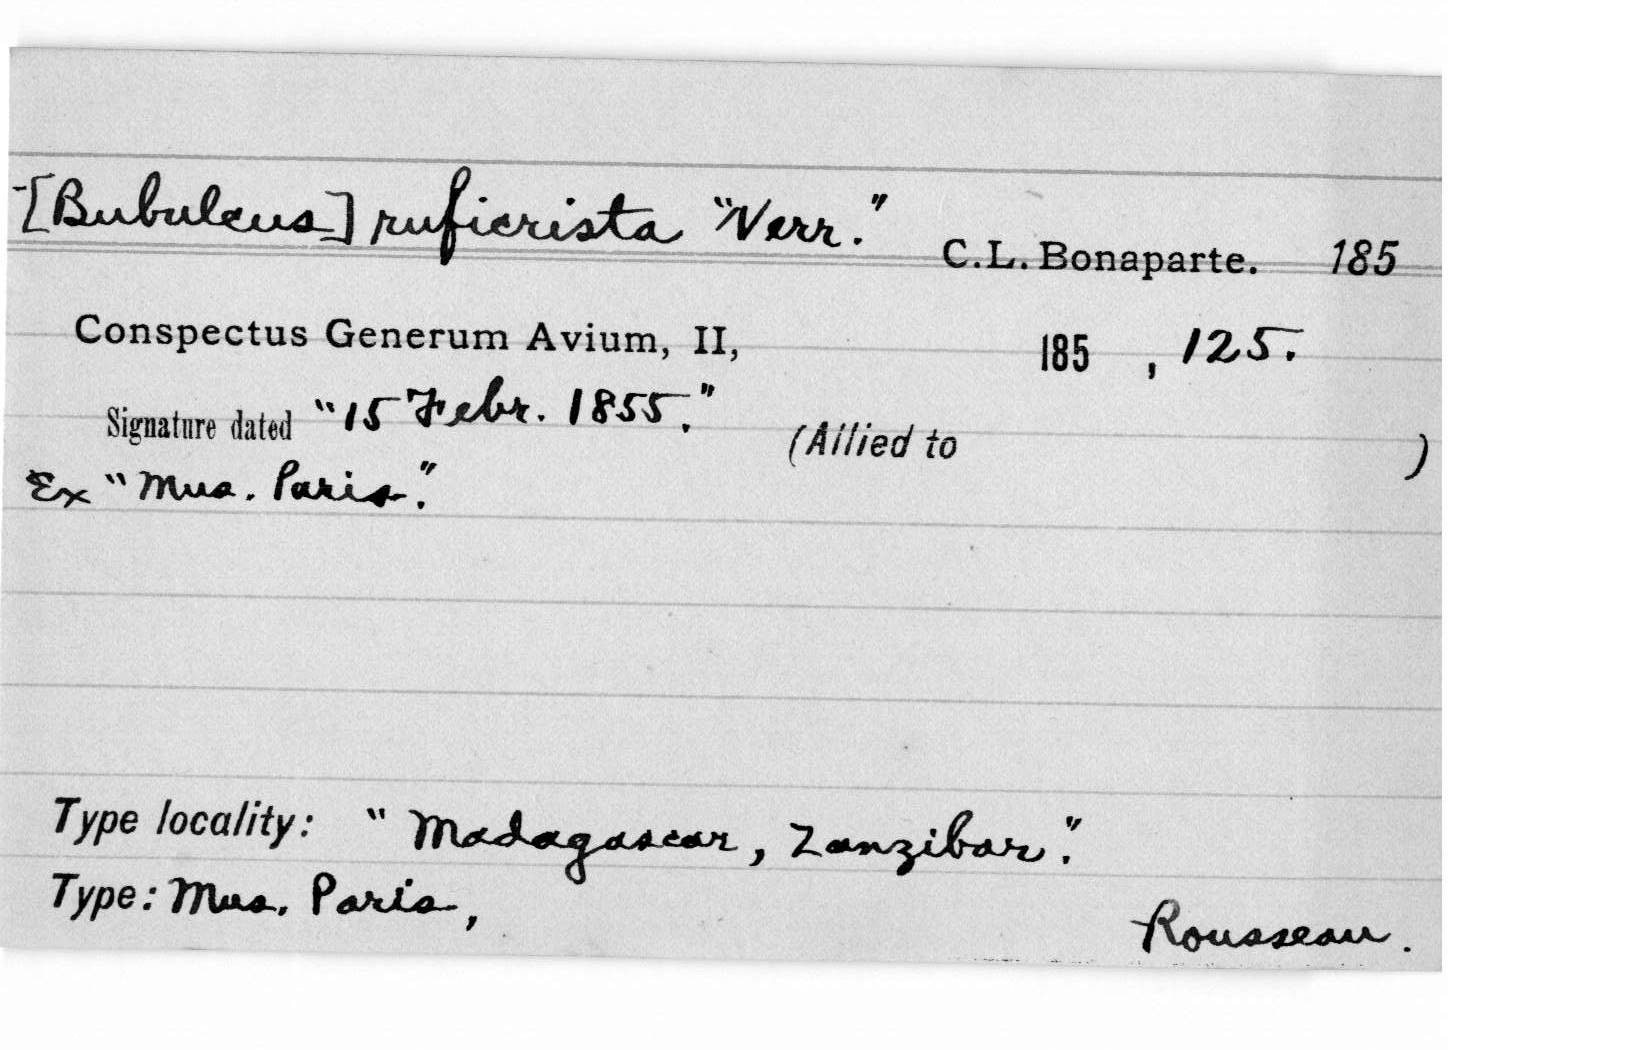 [Bubulcus] ruficrista "Verr." C.L. Bonaparte. 185
Conspectus Generum Avium, II, 185 , 125.
Signature dated "15 Febr. 1855." (Allied to )
Ex "Mus. Paris."
Type locality: "Madagascar, Zanzibar."
Type: Mus. Paris,
Rousseau.